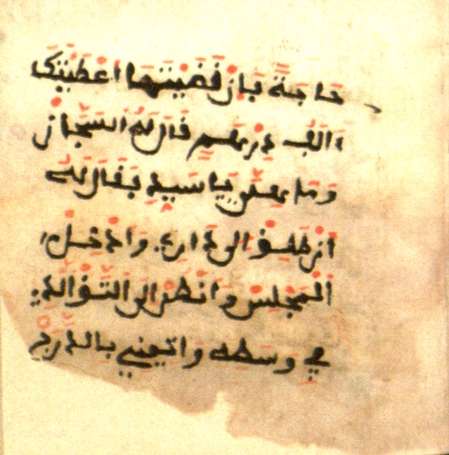 حاجة فان قضيتها اعطيتك
الف درهم قال له السجان
وما هي يا سيدي فقال له
انطلق الى داري وادخل
المجلس وانظر الى الذي
في وسطه واتيني بالدرج